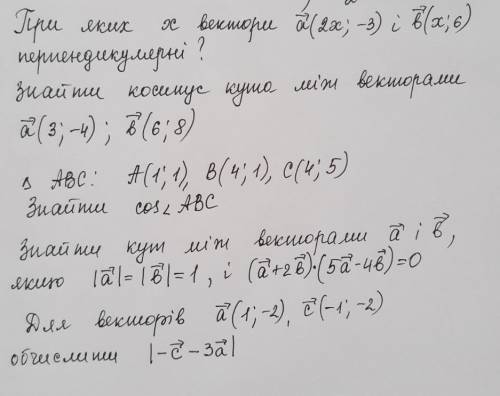 При яких x вектори a⃗(2x; -3) і b⃗(x; 6)
перпендикулярні?
Знайти косинус кута між векторами
a⃗(3; -4); b⃗(6; 8)
△ ABC: A(1; 1), B(4; 1), C(4; 5)
Знайти cos∠ABC
Знайти кут між векторами a⃗ і b⃗,
якщо |a⃗|=|b⃗|=1, і (a⃗+2b⃗)·(5a⃗-4b⃗)=0
Для векторів a⃗(1; -2), c⃗(-1; -2)
обчислити |-c⃗-3a⃗|